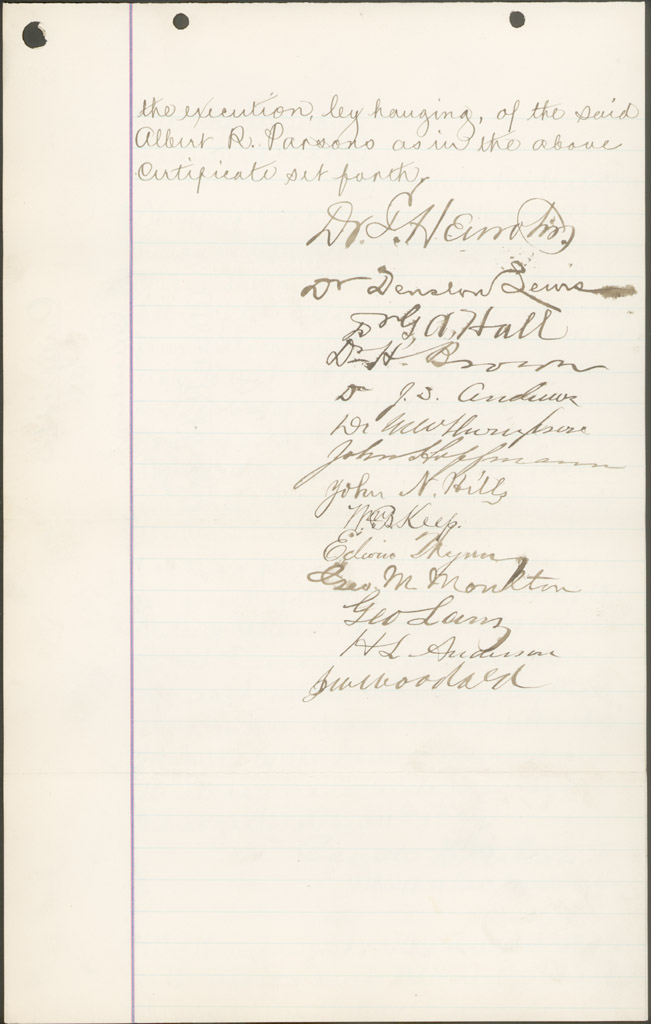 the execution, by hanging, of the said
Albert R. Parsons as in the above
Certificate set forth,
Dr.
Dr Denslow Lewis
Dr G A. Hall
Dr H. Brown
D J. S. Andrews
Dr MW Thompson
John Hoffmann
John N. Hills
Wm B Keep.
Edwin Wynn
Geo. M Moulton
Geo Lanz
H L Anderson